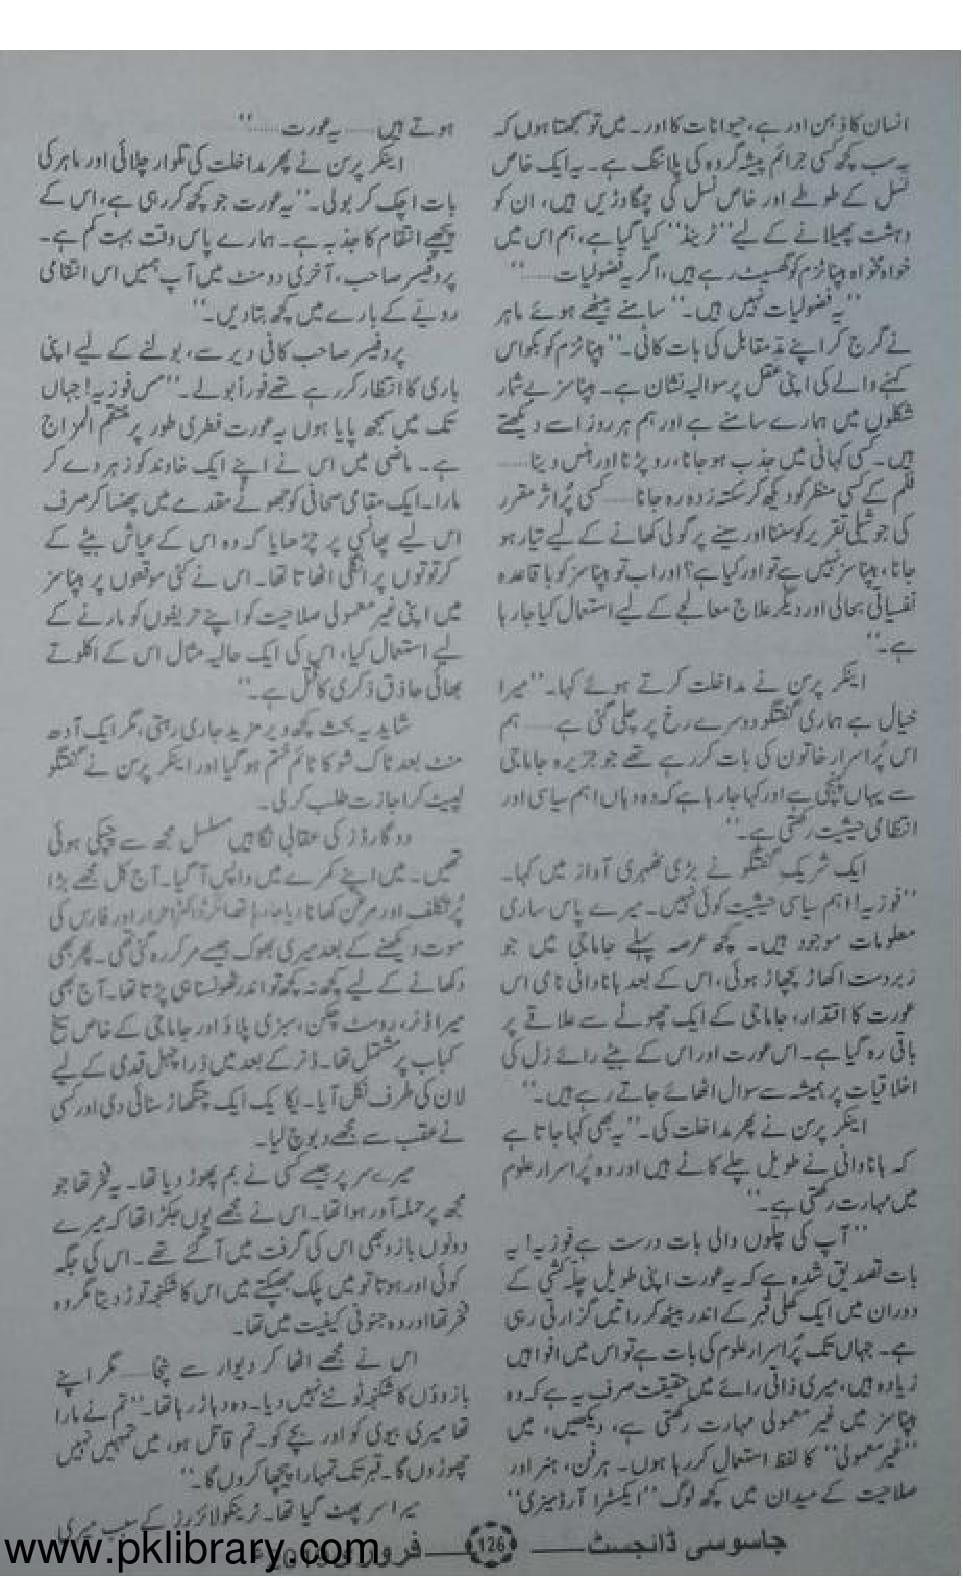 انسان کا ذہن اور ہے، حیوانات کا اور۔ میں تو سمجھتا ہوں کہ
یہ سب کچھ کسی جرائم پیشہ گروہ کی پلاننگ ہے۔ یہ ایک خاص
نسل کے طوطے اور خاص نسل کی چمگادڑیں ہیں، ان کو
دہشت پھیلانے کے لیے ’’ٹرینڈ‘‘ کیا گیا ہے، ہم اس میں
خواہ مخواہ ہپناٹزم کو گھسیٹ رہے ہیں، اگر یہ فضولیات......‘‘
’’یہ فضولیات نہیں ہیں۔‘‘ سامنے بیٹھے ہوئے ماہر
نے گرج کر اپنے مدِمقابل کی بات کاٹی۔ ’’ہپناٹزم کو بکواس
کہنے والے کی اپنی عقل پر سوالیہ نشان ہے۔ ہپناسز بے شمار
شکلوں میں ہمارے سامنے ہے اور ہم ہر روز اسے دیکھتے
ہیں۔ کسی کہانی میں جذب ہو جانا، رو پڑنا اور ہنس دینا......
فلم کے کسی منظر کو دیکھ کر سکتہ زدہ رہ جانا...... کسی پُراثر مقرر
کی جوشیلی تقریر کو سننا اور سینے پر گولی کھانے کے لیے تیار ہو
جانا، ہپناسز نہیں ہے تو اور کیا ہے؟ اور اب تو ہپناسز کو باقاعدہ
نفسیاتی بحالی اور دیگر علاج معالجے کے لیے استعمال کیا جا رہا
ہے۔‘‘
اینکر پرسن نے مداخلت کرتے ہوئے کہا۔ ’’میرا
خیال ہے ہماری گفتگو دوسرے رخ پر چلی گئی ہے...... ہم
اس پُراسرار خاتون کی بات کر رہے تھے جو جزیرہ جاماجی
سے یہاں پہنچی ہے اور کہا جا رہا ہے کہ وہ وہاں اہم سیاسی اور
انتظامی حیثیت رکھتی ہے۔‘‘
ایک شریکِ گفتگو نے بڑی ٹھہری آواز میں کہا۔
’’فوزیہ! اہم سیاسی حیثیت کوئی نہیں۔ میرے پاس ساری
معلومات موجود ہیں۔ کچھ عرصہ پہلے جاماجی میں جو
زبردست اکھاڑ پچھاڑ ہوئی، اس کے بعد ہاناوانی نامی اس
عورت کا اقتدار، جاماجی کے ایک چھوٹے سے علاقے پر
باقی رہ گیا ہے۔ اس عورت اور اس کے بیٹے رائے زل کی
اخلاقیات پر ہمیشہ سے سوال اٹھائے جاتے رہے ہیں۔‘‘
اینکر پرسن نے پھر مداخلت کی۔ ’’یہ بھی کہا جاتا ہے
کہ ہاناوانی نے طویل چلے کاٹے ہیں اور وہ پُراسرار علوم
میں مہارت رکھتی ہے۔‘‘
’’آپ کی چلوں والی بات درست ہے فوزیہ! یہ
بات تصدیق شدہ ہے کہ یہ عورت اپنی طویل چلہ کشی کے
دوران میں ایک کھلی قبر کے اندر بیٹھ کر راتیں گزارتی رہی
ہے۔ جہاں تک پُراسرار علوم کی بات ہے تو اس میں افواہیں
زیادہ ہیں، میری ذاتی رائے میں حقیقت صرف یہ ہے کہ وہ
ہپناسز میں غیر معمولی مہارت رکھتی ہے، دیکھیں، میں
’’غیر معمولی‘‘ کا لفظ استعمال کر رہا ہوں۔ ہر فن، ہنر اور
صلاحیت کے میدان میں کچھ لوگ ’’ایکسٹرا آرڈینری‘‘
ہوتے ہیں...... یہ عورت......‘‘
اینکر پرسن نے پھر مداخلت کی تلوار چلائی اور ماہر کی
بات اچک کر بولی۔ ’’یہ عورت جو کچھ کر رہی ہے، اس کے
پیچھے انتقام کا جذبہ ہے۔ ہمارے پاس وقت بہت کم ہے۔
پروفیسر صاحب، آخری دو منٹ میں آپ ہمیں اس انتقامی
رویّے کے بارے میں کچھ بتا دیں۔‘‘
پروفیسر صاحب کافی دیر سے، بولنے کے لیے اپنی
باری کا انتظار کر رہے تھے فوراً بولے۔ ’’مس فوزیہ! جہاں
تک میں سمجھ پایا ہوں یہ عورت فطری طور پر منتقم المزاج
ہے۔ ماضی میں اس نے اپنے ایک خاوند کو زہر دے کر
مارا۔ ایک مقامی صحافی کو جھوٹے مقدمے میں پھنسا کر صرف
اس لیے پھانسی پر چڑھایا کہ وہ اس کے عیاش بیٹے کے
کرتوتوں پر انگلی اٹھاتا تھا۔ اس نے کئی موقعوں پر ہپناسز
میں اپنی غیر معمولی صلاحیت کو اپنے حریفوں کو مارنے کے
لیے استعمال کیا، اس کی ایک حالیہ مثال اس کے اکلوتے
بھائی حاذق ذکری کا قتل ہے۔‘‘
شاید یہ بحث کچھ دیر مزید جاری رہتی، مگر ایک آدھ
منٹ بعد ٹاک شو کا ٹائم ختم ہو گیا اور اینکر پرسن نے گفتگو
لپیٹ کر اجازت طلب کر لی۔
دو گارڈز کی عقابی نگاہیں مسلسل مجھ سے چپکی ہوئی
تھیں۔ میں اپنے کمرے میں واپس آ گیا۔ آج کل مجھے بڑا
پُرتکلف اور مرغن کھانا دیا جا رہا تھا مگر ڈاکٹر احرار اور فارس کی
موت دیکھنے کے بعد میری بھوک جیسے مر کر رہ گئی تھی۔ پھر بھی
دکھانے کے لیے کچھ نہ کچھ تو اندر ٹھونسنا ہی پڑتا تھا۔ آج بھی
میرا ڈنر، روسٹ چکن، سبزی پلاؤ اور جاماجی کے خاص سیخ
کباب پر مشتمل تھا۔ ڈنر کے بعد میں ذرا چہل قدمی کے لیے
لان کی طرف نکل آیا۔ یکایک ایک چنگھاڑ سنائی دی اور کسی
نے عقب سے مجھے دبوچ لیا۔
میرے سر پر جیسے کسی نے بم پھوڑ دیا تھا۔ یہ فخر تھا جو
مجھ پر حملہ آور ہوا تھا۔ اس نے مجھے یوں جکڑا تھا کہ میرے
دونوں بازو بھی اس کی گرفت میں آ گئے تھے۔ اس کی جگہ
کوئی اور ہوتا تو میں پلک جھپکتے میں اس کا شکنجہ توڑ دیتا مگر وہ
فخر تھا اور وہ جنونی کیفیت میں تھا۔
اس نے مجھے اٹھا کر دیوار سے پٹخا...... مگر اپنے
بازوؤں کا شکنجہ ٹوٹنے نہیں دیا۔ وہ دہاڑ رہا تھا۔ ’’تم نے مارا
تھا میری بیوی کو اور بچے کو۔ تم قاتل ہو، میں تمہیں نہیں
چھوڑوں گا۔ قبر تک تمہارا پیچھا کروں گا۔‘‘
میرا سر پھٹ گیا تھا۔ ٹرینکولائزرز کے سبب میری
جاسوسی ڈائجسٹ
126
فروری
www.pklibrary.com